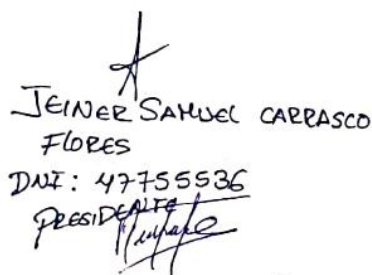 JEINER SAMUEL CARRASCO
FLORES
DNI: 47755536
PRESIDENTE